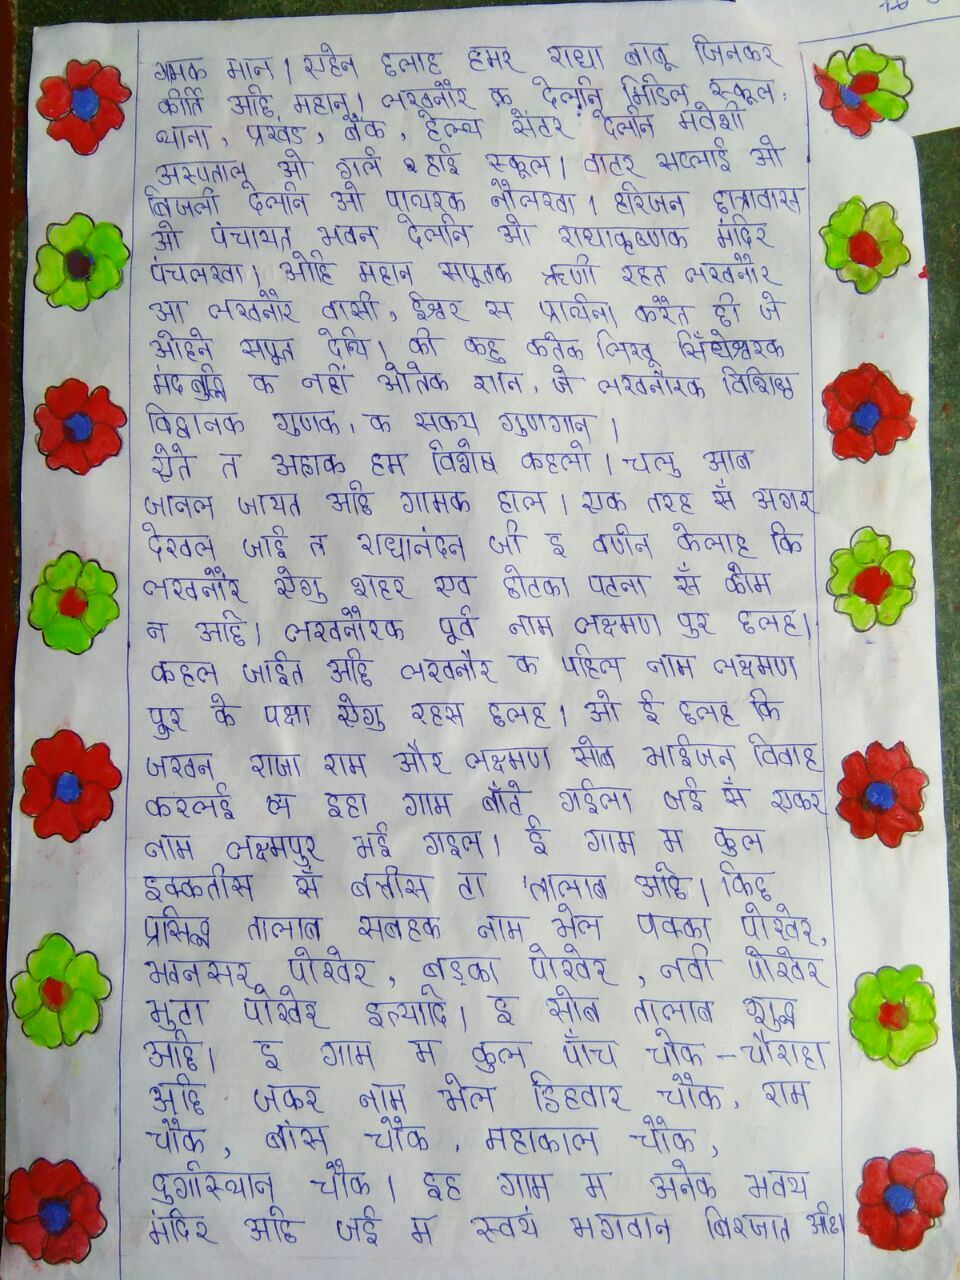 गामक मान। एहेन छलाह हमर राधा बाबू जिनकर
कीर्ति अछि महान्। लखनौर क देलनि मिडिल स्कूल,
थाना, प्रखंड, बैंक, हेल्थ सेंटर देलनि मवेशी
अस्पताल ओ गर्ल हाई स्कूल। वाटर सप्लाई ओ
बिजली देलनि ओ पाथरक नौलखा। हरिजन छात्रावास
ओ पंचायत भवन देलनि ओ राधाकृष्णक मंदिर
पंचलखा। ओहि महान सपूतक ऋणी रहत लखनौर
आ लखनौर वासी, ईश्वर स प्रार्थना करैत छी जे
ओहने सपूत देथि। की कहु कतेक लिखू सिंधेश्वरक
मंद बुद्धि क नहीं ओतेक ज्ञान, जे लखनौरक विशिष्ठ
विद्वानक गुणक, क सकय गुणगान।
ऐते त अहाक हम विशेष कहलौ। चलु आब
जानल जायत अछि गामक हाल। एक तरह सँ अगर
देखल जाई त राधानंदन जी इ वर्णन केलाह कि
लखनौर ऐगु शहर एव छोटका पटना सँ कोम
न अछि। लखनौरक पूर्व नाम लक्षमण पुर छलह।
कहल जाईत अछि लखनौर क पहिल नाम लक्षमण
पुर के पक्षा ऐगु रहस छलह। ओ ई छलह कि
जखन राजा राम और लक्षमण सोब भाईजन विवाह
करलई छ्म इहा गाम बाँते गईल। जई सँ एकर
नाम लक्षमपुर भई गइल। ई गाम म कुल
इक्कतीस सँ बत्तीस टा तालाब अछि। किछ
प्रसिद्ध तालाब सबहक नाम भेल पक्का पोखैर,
भवनसर पोखैर, बड़का पोखैर, नवी पोखैर
मुटा पोखैर इत्यादि। इ सोब तालाब शुद्ध
अछि। इ गाम म कुल पाँच चोक - चौराहा
अछि जकर नाम भेल डिहवार चौक, राम
चौक, बांस चौक, महाकाल चौक,
दुर्गास्थान चौक। इह गाम म अनेक भवय
मंदिर अछि जई म स्वयं भगवान बिरजात अछि।